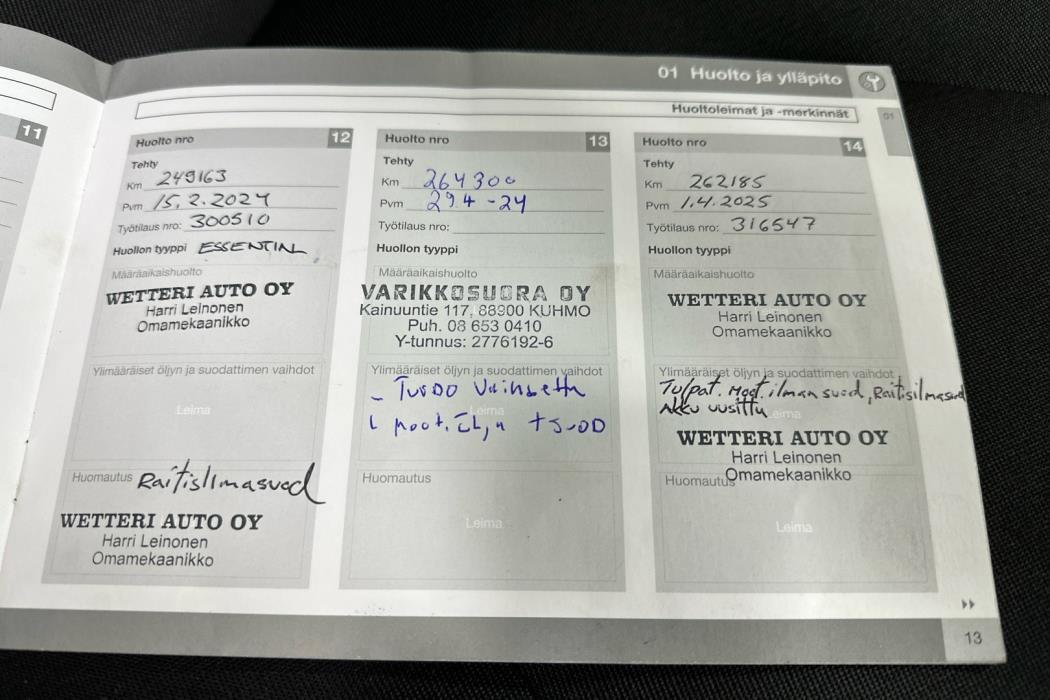 01 Huolto ja ylläpito
Huoltoleimat ja -merkinnät
01
11
Huolto nro 12
Tehty
Km 249163
Pvm 15.2.2024
Työtilaus nro: 300510
Huollon tyyppi ESSENTIAL
Määräaikaishuolto
WETTERI AUTO OY
Harri Leinonen
Omamekaanikko
Ylimääräiset öljyn ja suodattimen vaihdot
Leima
Huomautus Raitisilmasuod
WETTERI AUTO OY
Harri Leinonen
Omamekaanikko
Huolto nro 13
Tehty
Km 264300
Pvm 29.4-24
Työtilaus nro:
Huollon tyyppi
Määräaikaishuolto
VARIKKOSUORA OY
Kainuuntie 117, 88900 KUHMO
Puh. 08 653 0410
Y-tunnus: 2776192-6
Ylimääräiset öljyn ja suodattimen vaihdot
- Turbo
Leima
Huomautus
Leima
Huolto nro 14
Tehty
Km 262185
Pvm 1.4.2025
Työtilaus nro: 316547
Huollon tyyppi
Määräaikaishuolto
WETTERI AUTO OY
Harri Leinonen
Omamekaanikko
Ylimääräiset öljyn ja suodattimen vaihdot
Tulpat. Moot. ilman suod, Raitisilmasuod
Akku uusittu
Leima
WETTERI AUTO OY
Harri Leinonen
Omamekaanikko
Huomautus
Leima
13